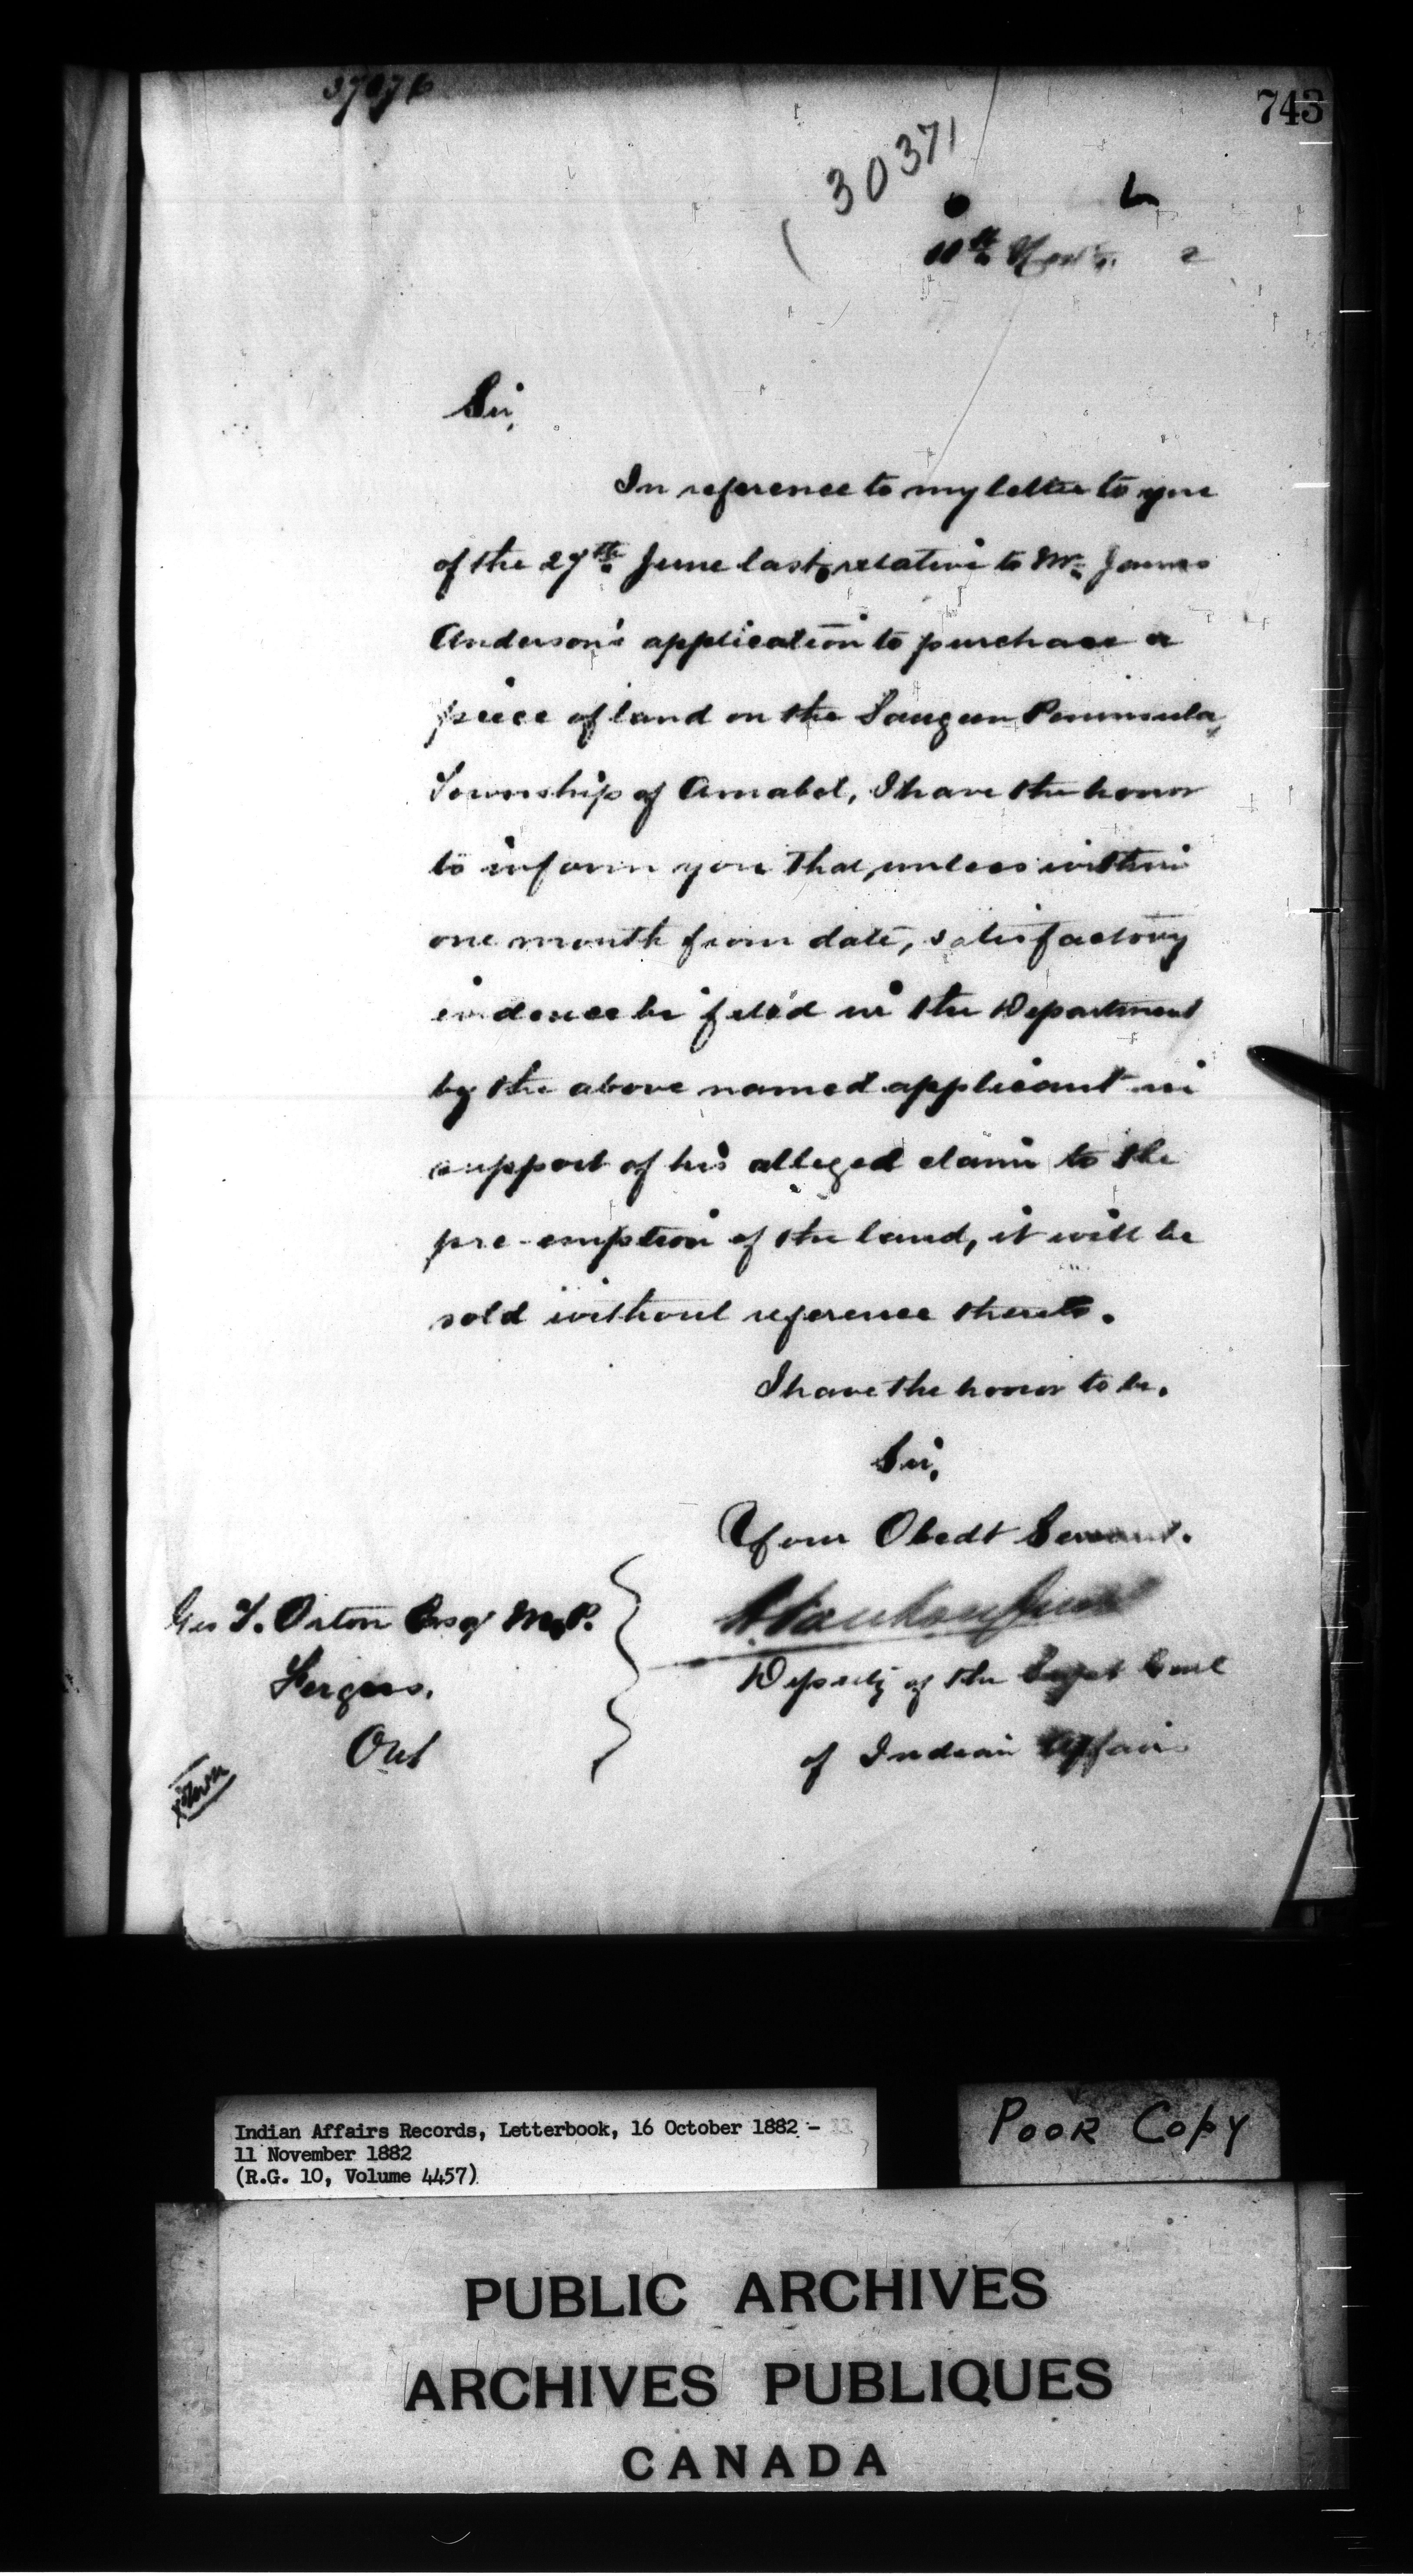 743
30371
11th Nov.
Sir,
In reference to my letter to you
of the 27th June last, relative to Mr. James
Anderson's application to purchase a
piece of land on the Saugeen Peninsula,
Township of Amabel, I have the honor
to inform you that, unless within
one month from date, satisfactory
evidence be filed in the Department
by the above named applicant in
support of his alleged claim to the
pre-emption of the land, it will be
sold without reference thereto.
I have the honor to be.
Sir,
Your Obedt Servant.
Geo T. Orton Esqr M.P.
Fergus.
Ont
L Vankoughnet
Deputy of the Supt Genl
of Indian Affairs
Indian Affairs Records, Letterbook, 16 October 1882 -
11 November 1882
(R.G. 10, Volume 4457)
POOR COPY
PUBLIC ARCHIVES
ARCHIVES PUBLIQUES
CANADA